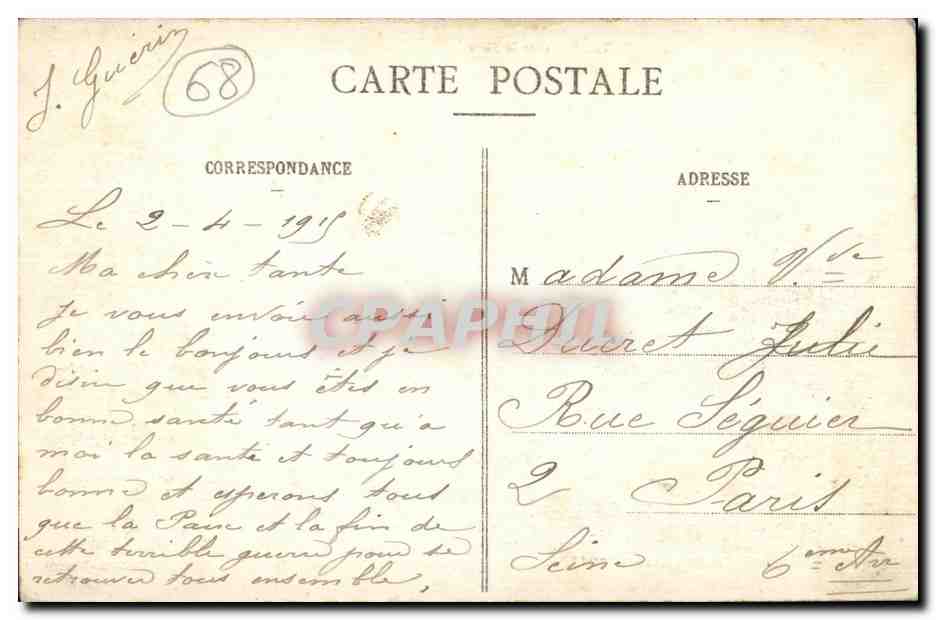 J. Guerin
68
CARTE POSTALE
CORRESPONDANCE
Le 2-4-1915
Ma chère tante
Je vous envoie aussi
bien le bonjour et je
désir que vous êtes en
bonne santé tant qu'à
moi la santé et toujours
bonne et esperons tous
que la Paix et la fin de
cette terrible guerre pour se
retrouver tous ensemble,
ADRESSE
Madame Vve
Ducret Julie
Rue Séguier
2 Paris
Seine 6eme Arr
CPAPHIL